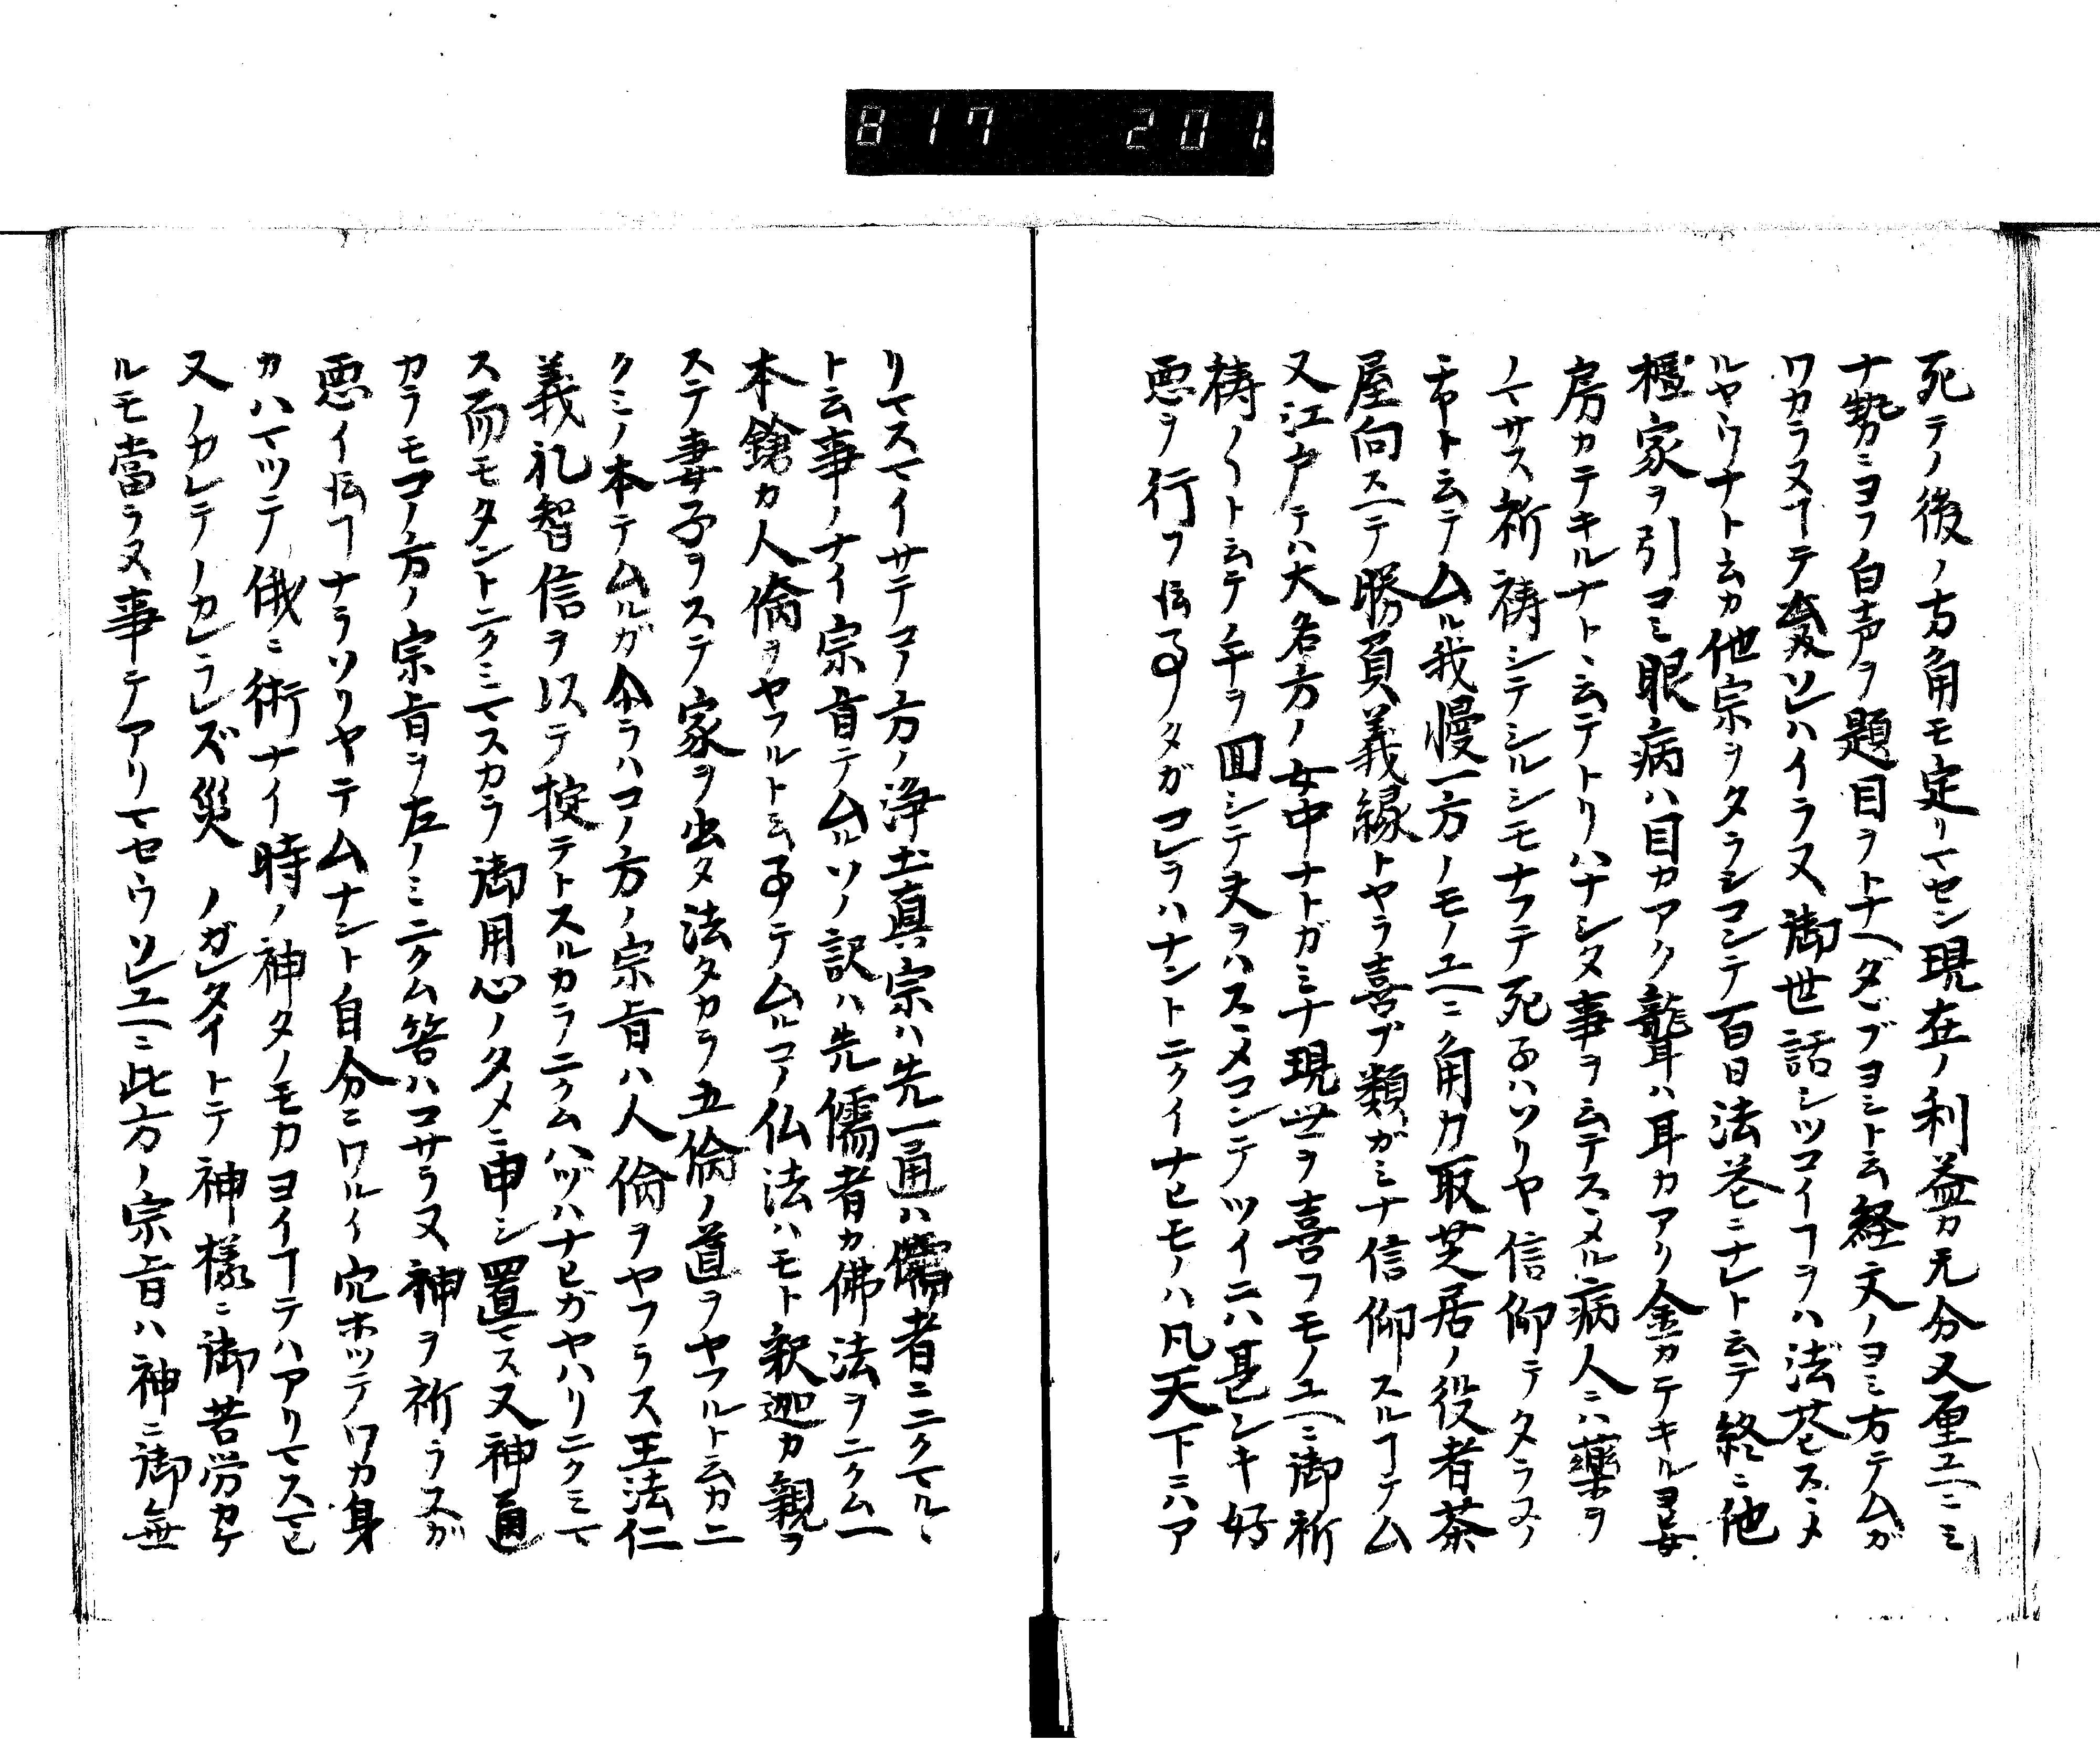 817 201.
死テノ後ノ方角モ定リマセン現在ノ利益カ充分又重ユヘニミ
ナ勢ニヨフ白声ヲ題目ヲトナヘダブヨシト云経文ノヨミ方テムガ
ワカラヌヿテムソレハイラヌ御世話シツコイヿヲハ法花ススメ
ルヤウナト云カ他宗ヲタラシコンテ百日法花ニナレト云テ終ニ他
檀家ヲ引コミ眼病ハ目カアク聾ハ耳カアク金カテキル
房カテキルナトト云テトリハナシタ事ヲ云テススメル病人ニハ藥ヲ
ノマサス祈祷シテシルシモナフテ死ネハソリヤ信仰テタラヌノ
ト云テムル我慢一方ノモノユヘニ角力取芝居ノ役者茶
屋向スヘテ勝負義縁トヤラ喜ブ類ガミナ信仰スルヿテム
又江戸テハ大名方ノ女中ナトガミナ現世ヲ喜フモノユヘニ御祈
祷ノヽト云テノ手ヲ回シテ夫ヲハススメコンテツイニハ甚シキ好
悪ヲ行フ伝事ノタガコレヲハナントニクイナヒモノハ凡天下ニハア
リマスマイサテコノ方ノ浄土真宗ハ先一通ハ儒者ニニクマルヽ
ト云事ノナイ宗旨テムルソノ訳ハ先儒者カ佛法ヲニクム一
本鎗カ人倫ヲヤフルト云事テムルコノ仏法ハモト釈迦カ親ヲ
ステ妻子ヲステ家ヲ出タ法タカラ五倫ノ道ヲヤフルト云カニ
クミノ本テムルガ今ラハコノ方ノ宗旨ハ人倫ヲヤフラス王法仁
義礼智信ヲ以テ掟テトスルカラニクムハヅハナヒガヤハリニクミマ
ス而モタントニクミマスカラ御用心ノタメニ申シ置マス又神道
カラモコノ方ノ宗旨ヲ左ノミニクム筈ハコサラヌ神ヲ祈ラヌガ
悪イ伝ヿナラソリヤテムナント自分ニワルイ穴ホッテワカ身
カハマツテ俄ニ術ナイ時ノ神タノモカヨイヿテハアリマスマヒ
又ノカレテノカレラレズ災ノガレタイトテ神様ニ御苦労カケ
ルモ當ラヌ事テアリマセウソレユヘニ此方ノ宗旨ハ神ニ御無